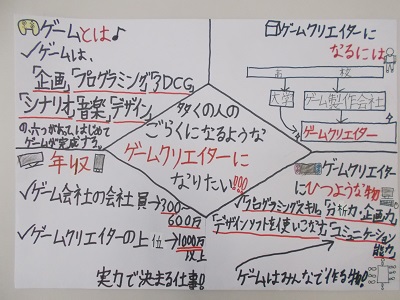 ゲームとは♪
✓ゲームは、
「企画」「プログラミング」「3DCG」
「シナリオ」「音楽」「デザイン」
の、六つがあって、はじめて
ゲームが完成する。
ゲームクリエイターに
なるには
高校
大学
ゲーム製作会社
ゲームクリエイター
多くの人の
ごらくになるような
ゲームクリエイターに
なりたい!!!
年収
✓ゲーム会社の会社員→300〜
600万
✓ゲームクリエイターの上位→1000万
以上
実力で決まる仕事!!
ゲームクリエイター
にひつような物
✓「プログラミングスキル」「分析力・企画力」
「デザインソフトを使いこなす」「コミュニケーション
能力」
ゲームはみんなで作る物!!